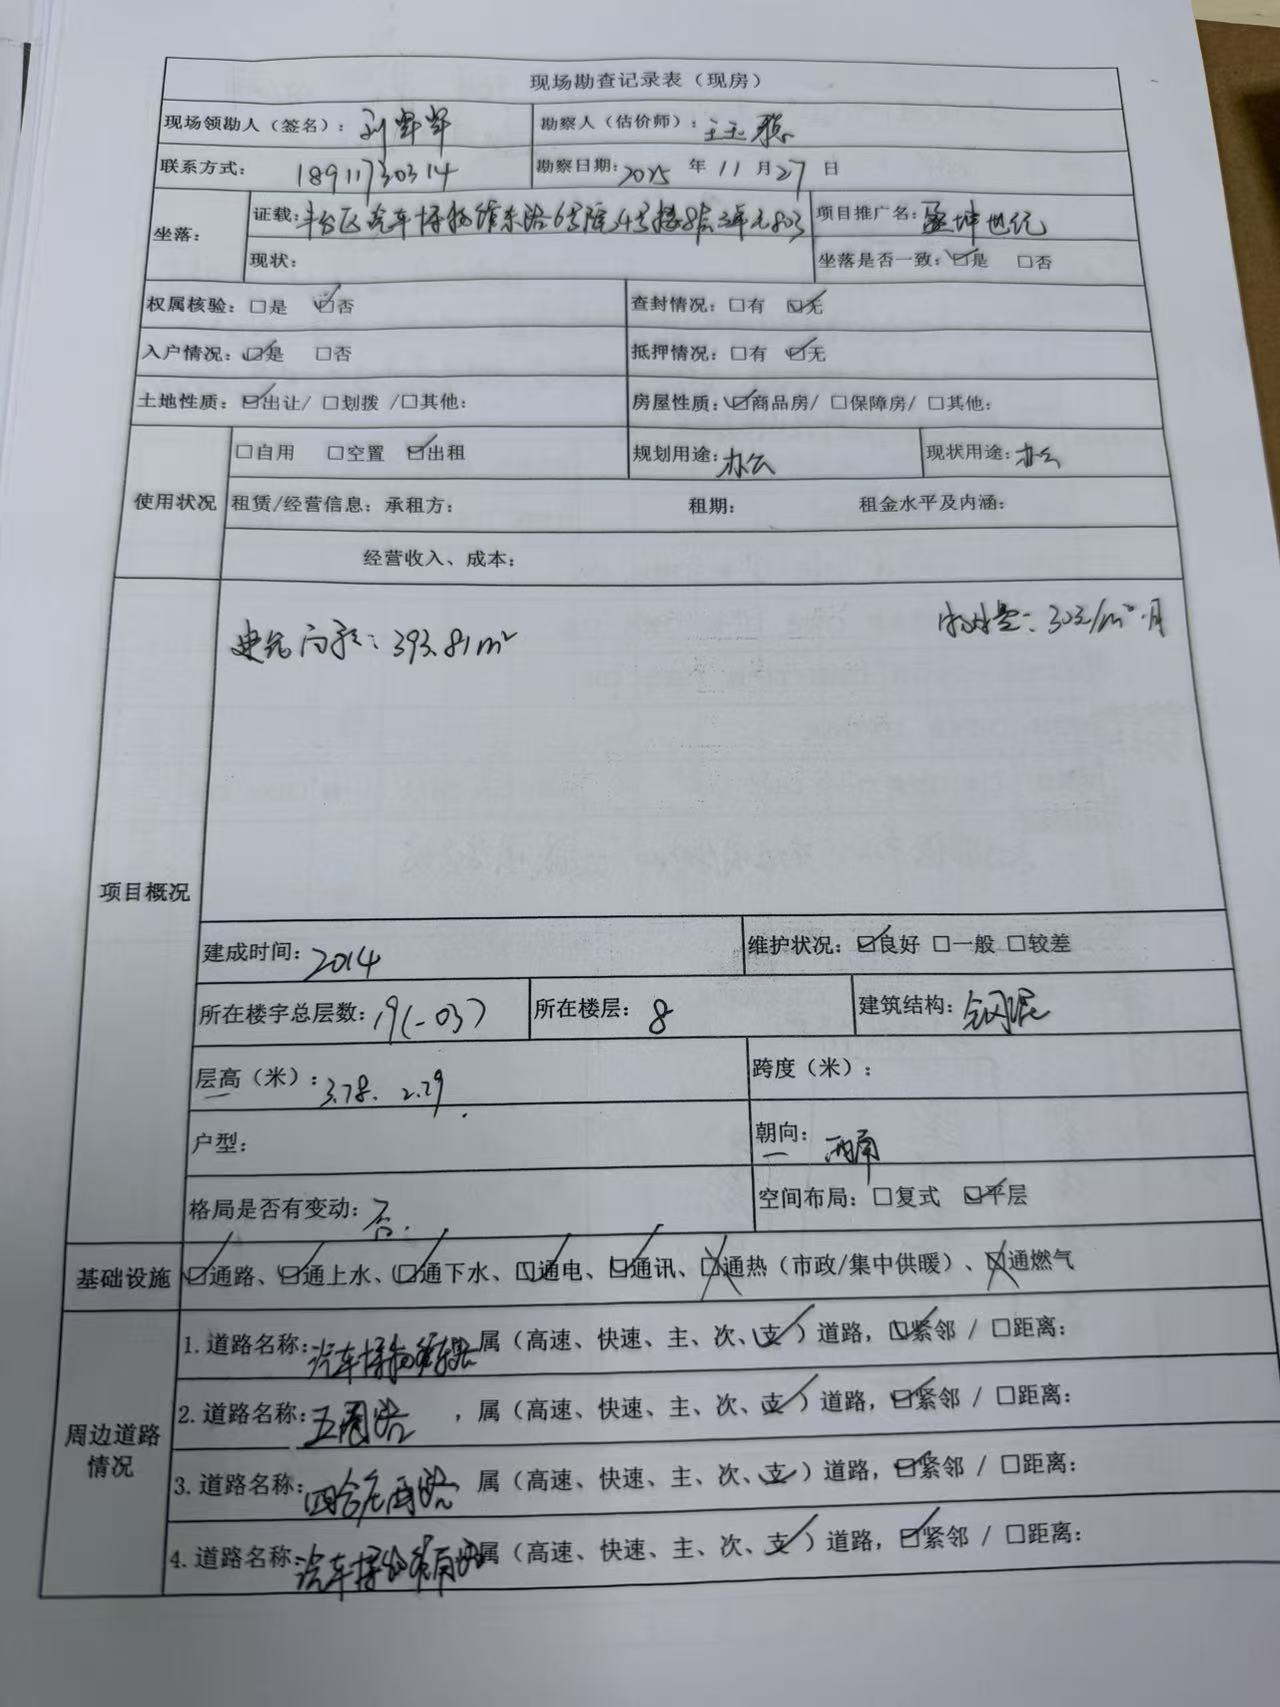 现场勘查记录表（现房）
现场领勘人（签名）： 勘察人（估价师）：王玉
联系方式：18911730314 勘察日期：2025 年 11 月 27 日
坐落： 证载：丰台区汽车博物馆东路6号院4号楼8层3单元803 项目推广名：盈坤世纪
现状： 坐落是否一致：☑是 □否
权属核验：□是 ☑否 查封情况：□有 ☑无
入户情况：☑是 □否 抵押情况：□有 ☑无
土地性质：☑出让/ □划拨 /□其他： 房屋性质：☑商品房/ □保障房/ □其他：
使用状况 □自用 □空置 ☑出租 规划用途：办公 现状用途：办公
租赁/经营信息：承租方： 租期： 租金水平及内涵：
经营收入、成本：
项目概况
建筑面积：393.81m² 30元/m²·月
建成时间：2014 维护状况：☑良好 □一般 □较差
所在楼宇总层数：19(-03) 所在楼层：8 建筑结构：钢混
层高（米）：3.78. 2.79. 跨度（米）：
户型： 朝向：西南
格局是否有变动：否. 空间布局：□复式 ☑平层
基础设施 ☑通路、☑通上水、☑通下水、☑通电、☑通讯、☒通热（市政/集中供暖）、☒通燃气
周边道路情况
1.道路名称：汽车博物馆东路 属（高速、快速、主、次、支✓）道路，☑紧邻 / □距离：
2.道路名称：五圈路，属（高速、快速、主、次、支✓）道路，☑紧邻 / □距离：
3.道路名称：四合庄西路，属（高速、快速、主、次、支✓）道路，☑紧邻 / □距离：
4.道路名称：汽车博物馆南路 属（高速、快速、主、次、支✓）道路，☑紧邻 / □距离：